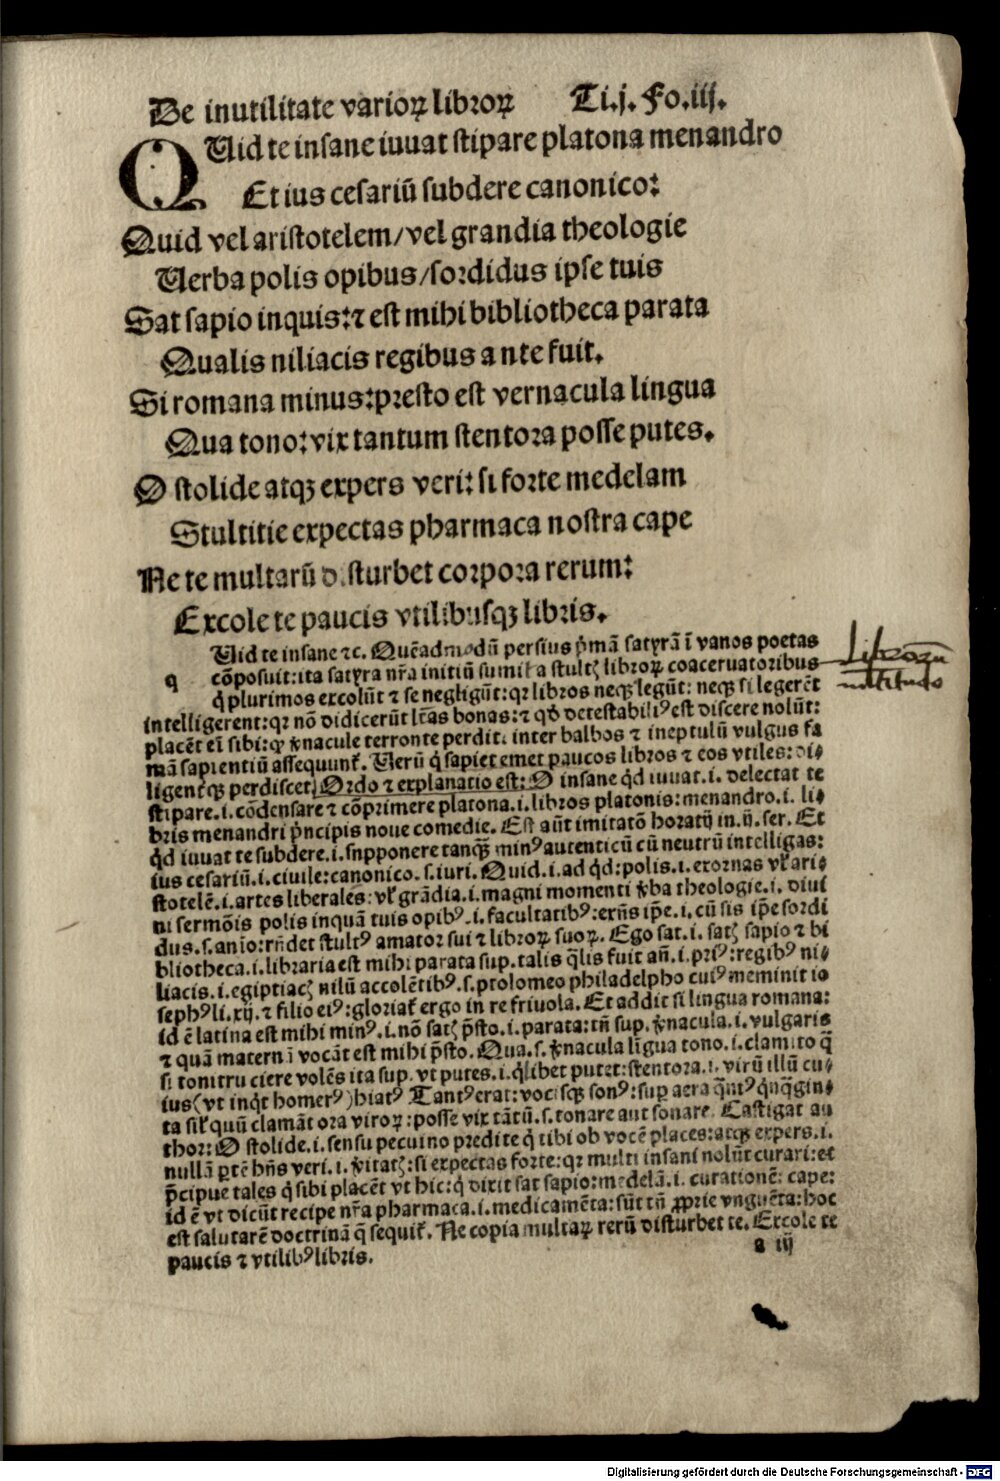 De inutilitate varioꝝ libroꝝ Ti.j. Fo.iij.
QUid te insane iuuat stipare platona menandro
Et ius cesariū subdere canonico:
Quid vel aristotelem/vel grandia theologie
Uerba polis opibus/sordidus ipse tuis
Sat sapio inquis:⁊ est mihi bibliotheca parata
Qualis niliacis regibus ante fuit.
Si romana minus:presto est vernacula lingua
Qua tono:vix tantum stentora posse putes.
O stolide atqꝫ expers veri: si forte medelam
Stultitie expectas pharmaca nostra cape
Ne te multarū disturbet corpora rerum:
Excole te paucis vtilibusqꝫ libris.
Uid te insane ⁊c. Quēadmodū persius pͥmā satyrā ī vanos poetas
q cōposuit:ita satyra nr̄a initiū sumit a stultꝭ libroꝝ coaceruatoribus
qͥ plurimos excolūt ⁊ se negligūt:qꝛ libros neqꝫ legūt: neqꝫ si legerēt
intelligerent:qꝛ nō didicerūt lr̄as bonas:⁊ qđ detestabiliꝰ est discere nolūt:
placēt eī sibi:qꝫ v̓nacule terronte perditi inter balbos ⁊ ineptulū vulgus fa
mā sapientiū assequunt̉. Uerū qͥ sapiet emet paucos libros ⁊ eos vtiles: di⸗
ligent̉qꝫ perdiscet. Ordo ⁊ explanatio est: O insane qͥd iuuat .i. delectat te
stipare .i. cōdensare ⁊ cōprimere platona .i. libros platonis: menandro .i. li⸗
bris menandri pͥncipis noue comedie. Est aūt imitatō horatij in .ij. ser. Et
qͥd iuuat te subdere .i. snpponere tanqꝫ̄ minꝰ autenticū cū neutrū intelligas:
ius cesariū .i. ciuile: canonico .s. iuri. Quid .i. ad qͥd: polis .i. exornas vl̓ ari⸗
stotelē .i. artes liberales: vl̓ grādia .i. magni momenti v̓ba theologie .i. diui
ni sermōis polis inquā tuis opibꝰ .i. facultatibꝰ: exn̄s ip̄e .i. cū sis ip̄e sordi
dus .s. anīo: rn̄det stultꝰ amator sui ⁊ libroꝝ suoꝝ. Ego sat .i. satꝭ sapio ⁊ bi
bliotheca .i. libraria est mihi parata sup. talis qͣlis fuit añ .i. priꝰ: regibꝰ ni⸗
liacis .i. egiptiacꝭ nilū accolētibꝰ .s. ptolomeo philadelpho cuiꝰ meminit io
sephꝰ li. xij. ⁊ filio eiꝰ: gloriat̉ ergo in re friuola. Et addit si lingua romana:
id ē latina est mihi minꝰ .i. nō satꝭ p̄sto .i. parata: tn̄ sup. v̓nacula .i. vulgaris
⁊ quā maternā vocāt est mihi p̄sto. Qua .s. v̓nacula līgua tono .i. clamito qͣ
si tonitru ciere volēs ita sup. vt putes .i. qͥlibet putet: stentora .i. virū illū cu⸗
ius (vt inqͥt homerꝰ) hiatꝰ Tantꝰ erat: vocisqꝫ sonꝰ: sup aera qͣntꝰ qͥnqͣgin⸗
ta sil̓ quū clamāt ora viroꝝ: posse vix tātū .s. tonare aut sonare. Castigat au
thor: O stolide .i. sensu pecuino predite qͥ tibi ob vocē places: atqꝫ expers .i.
nullā ꝑtē hn̄s veri .i. v̓itatꝭ: si expectas forte: qꝛ multi insani nolūt curari: et
p̄cipue tales qͥ sibi placēt vt hic: qͥ dixit sat sapio: medelā .i. curationē: cape:
id ē vt dicūt recipe nr̄a pharmaca .i. medicamēta: sūt tn̄ ꝓprie vnguēta: hoc
est salutarē doctrinā q̄ sequit̉. Ne copia multaꝝ rerū disturbet te. Excole te
paucis ⁊ vtilibꝰ libris.
a iij
Librorū
multitudo
Digitalisierung gefördert durch die Deutsche Forschungsgemeinschaft - DFG